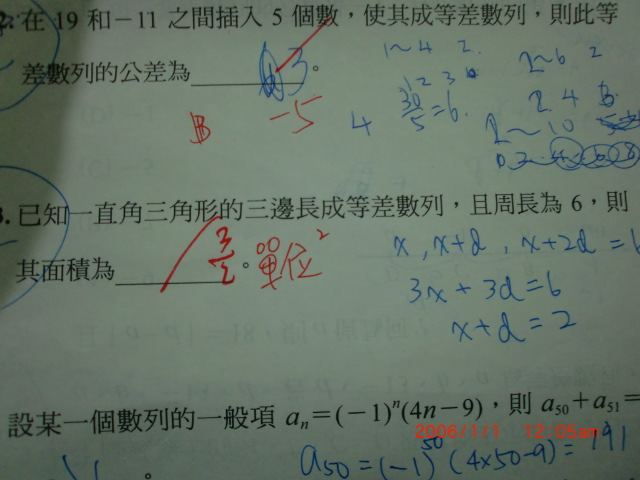 2. 在 19 和 -11 之間插入 5 個數，使其成等差數列，則此等
差數列的公差為 ______。
-5
1～4 2.
1 2 3 4
30/5 = 6.
4
2～6 2
2 4 6
2～10
3. 已知一直角三角形的三邊長成等差數列，且周長為 6，則
其面積為 3/2 。單位²
x , x+d , x+2d = 6
3x + 3d = 6
x+d = 2
設某一個數列的一般項 aₙ=(-1)ⁿ(4n-9)，則 a₅₀+a₅₁=
2006/1/1 12:05am
a₅₀ = (-1)⁵⁰ (4×50-9) = 191
。